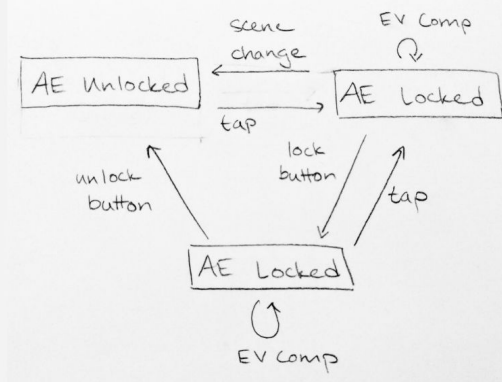 scene
change
EV Comp
AE Unlocked
AE Locked
tap
lock
button
unlock
button
tap
AE Locked
EV Comp